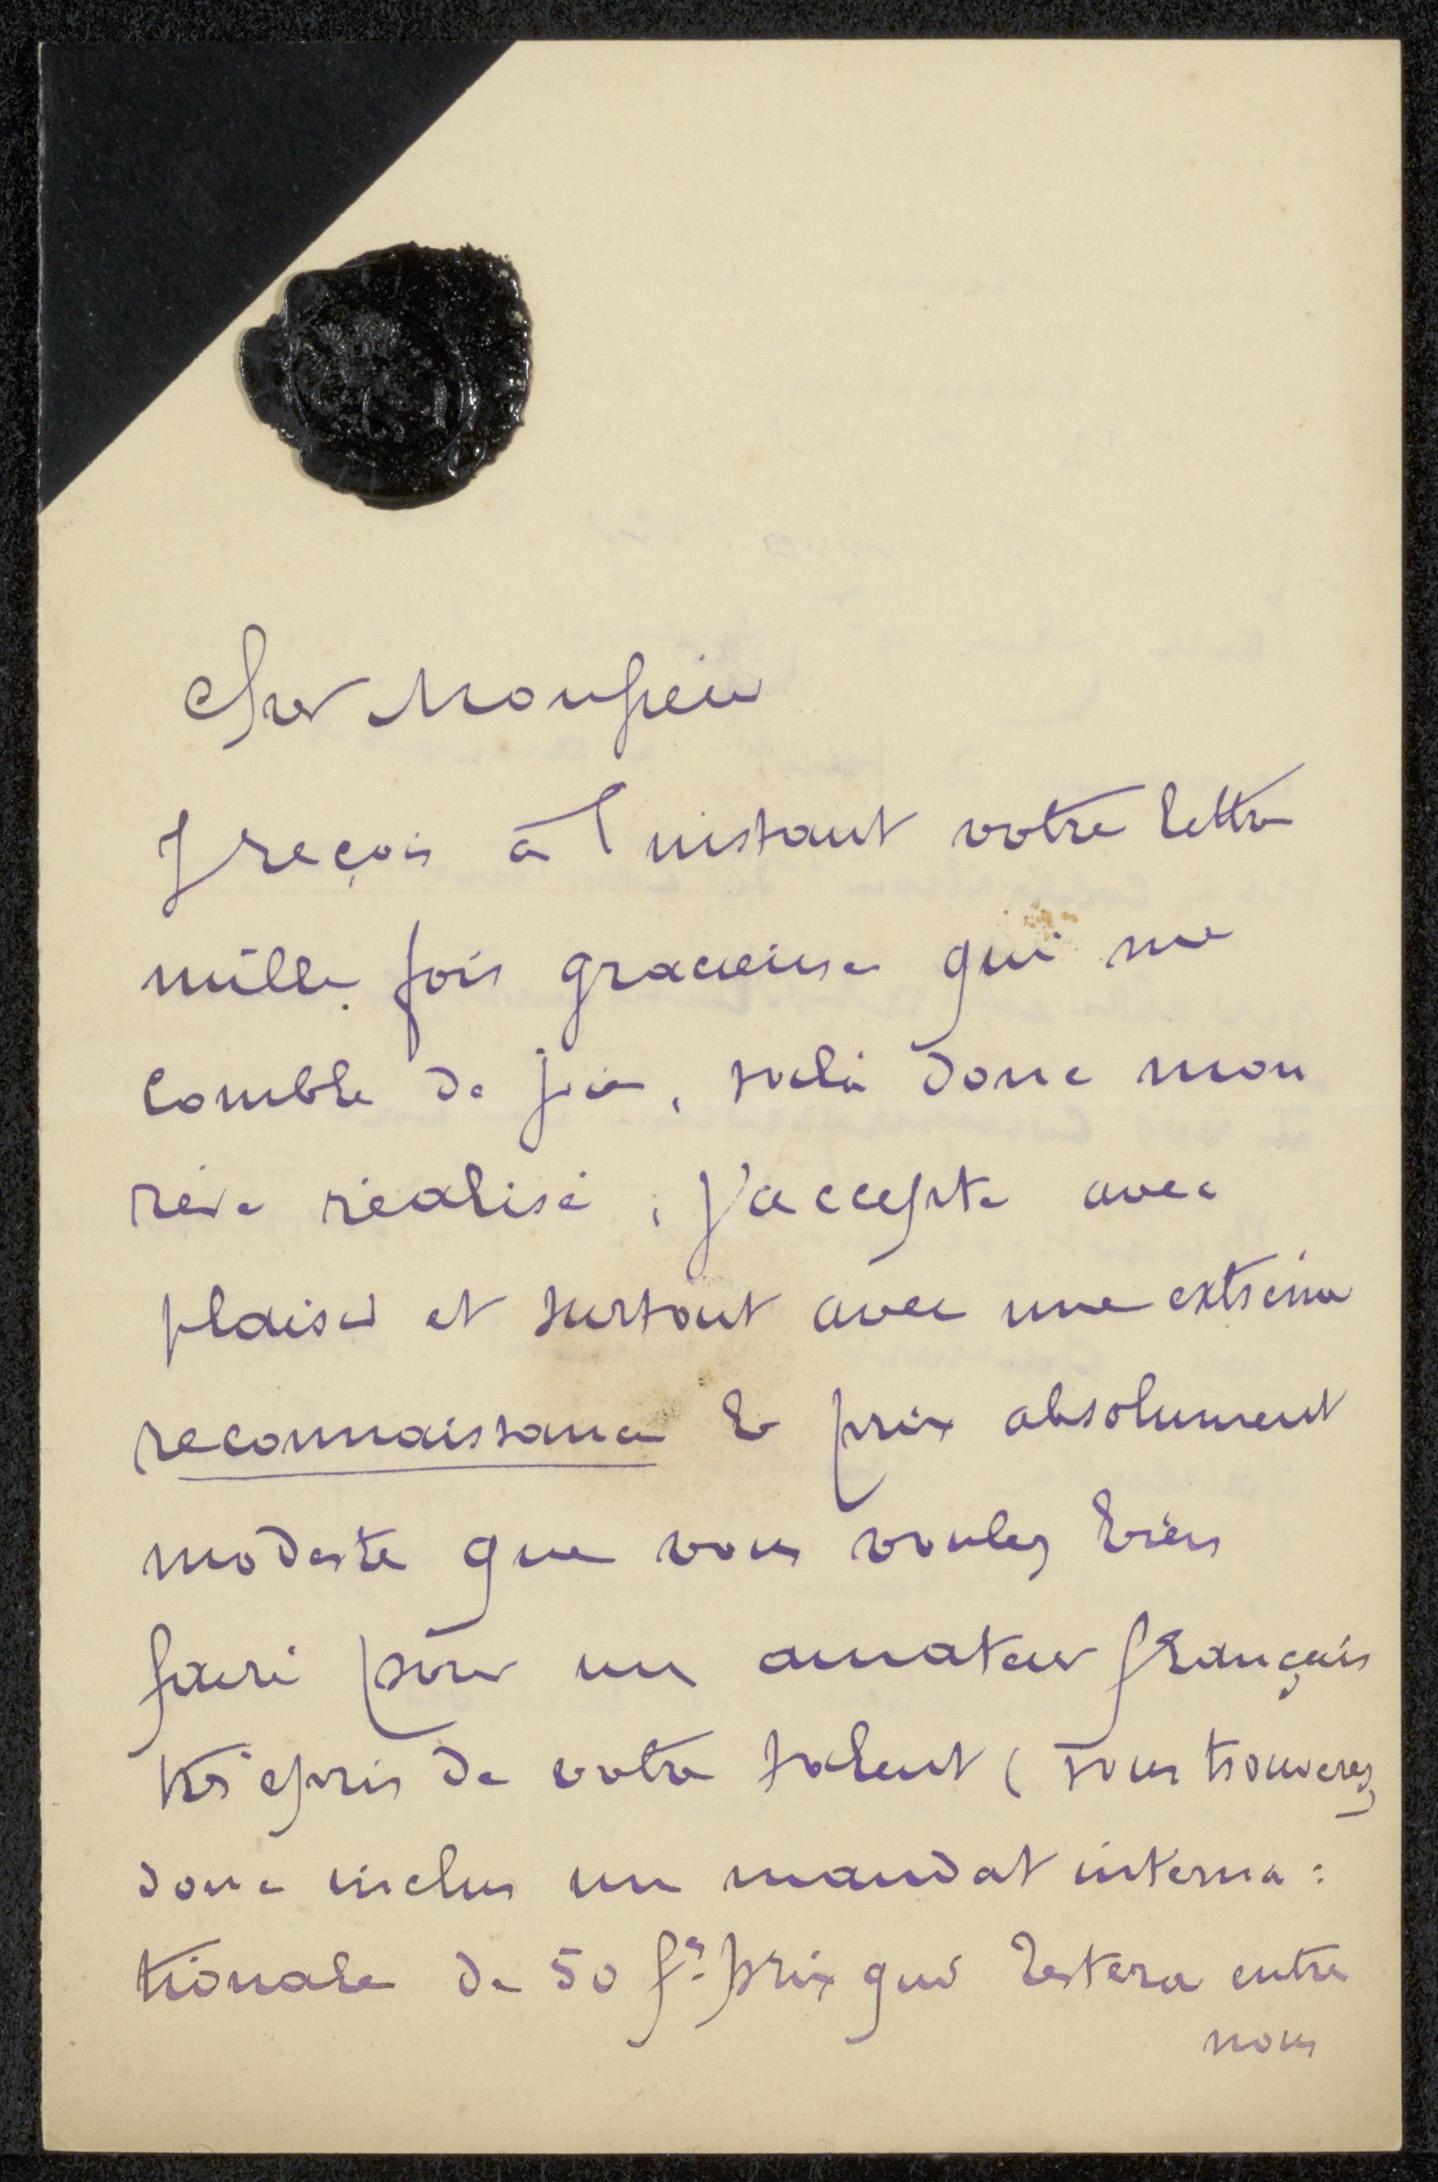 Cher Monsieur
Je reçois à l'instant votre lettre
mille fois gracieuse qui me
comble de joie, voilà donc mon
rêve réalisé, j'accepte avec
plaisir et surtout avec une extrême
reconnaissance le prix absolument
modeste que vous voulez bien
faire pour un amateur français
très épris de votre talent ( vous trouverez
donc inclus un mandat interna:
tionale de 50 frs prix qui restera entre
nous